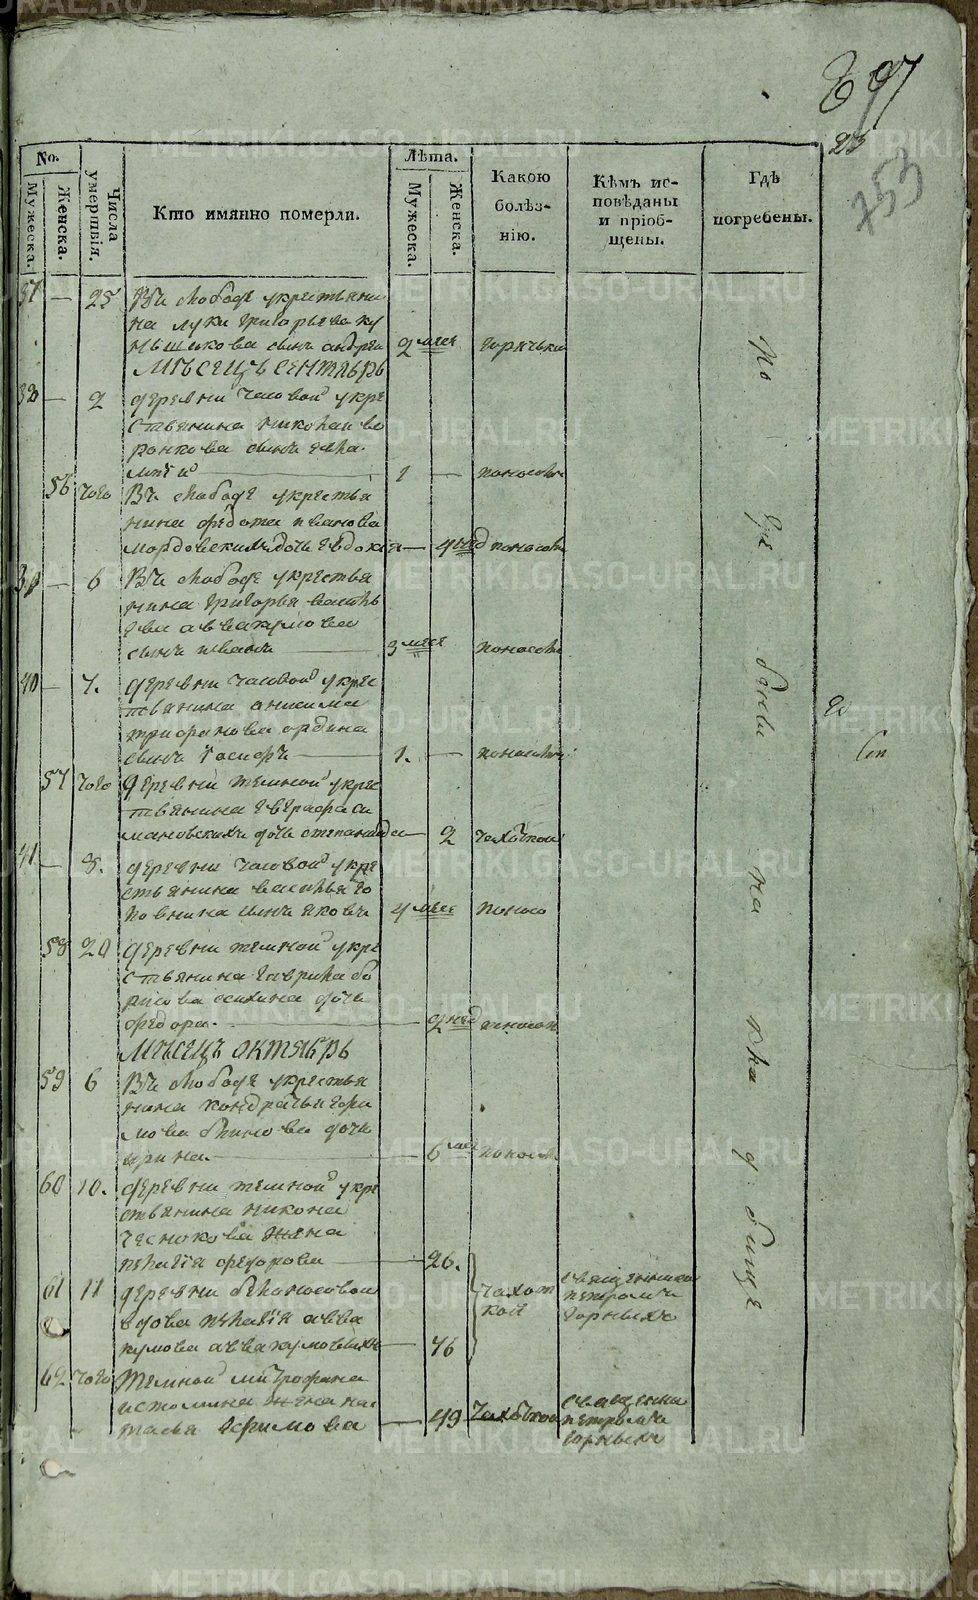 897
25
753
No.
Мужеска.
Женска.
Числа умертвія.
Кто имянно померли.
Лѣта.
Мужеска.
Женска.
Какою болѣз-нію.
Кѣмъ ис-повѣданы и пріоб-щены.
Гдѣ погребены.
37 — 25 Въ слободе укрестьяни
на луки григорьева ку
сынъ андреи 2 меся горячкы
Мѣсецъ сентябрь
38 — 2 деревни часовой укре
стьянина николаи во
ронкова сынъ
1 — поносомъ
56 того Въ слободе укрестья
нина федота иванова
мордовскихъ дочь евдокия — 4 нед поносом
— 6 Въ слободе укрестья
нина григорья василь
ева аввакумова
сынъ иванъ 3 меся поносомъ
40 — 7. деревни часовой укрес
тьянина анисима
трифанова ордина
сынъ иосифъ 1. — поносомъ
57 того деревни темной укрес
тьянина евграфа си
мановскихъ дочь степанида — 2 чахоткой
41 — 9. деревни часовой укре
стьянина василья го
ловнина сынъ яковъ 4 меся поносо
58 20 деревни темной укре
стьянина гаврила бо
рисова дочь
федора. — 2 нед поносом
Мѣсецъ октябрь
59 6 Въ слободе укрестья
нина кондратья
дочь
ирина. — 6 меся поносом
60 10. деревни темной укре
стьянина никона
чеснокова жена
пелагия федорова — 26.
61 11 деревни белоносовой
вдова пелагия авва
кумова аввакумовыхъ — 76
чахот
кой
священником
петромъ
горныхъ
62 того темной митрофана
истомина жена на
талья ефимова — 49 чахоткой
священни
петромъ
горныхъ
По
бли
на
кла
д
бище